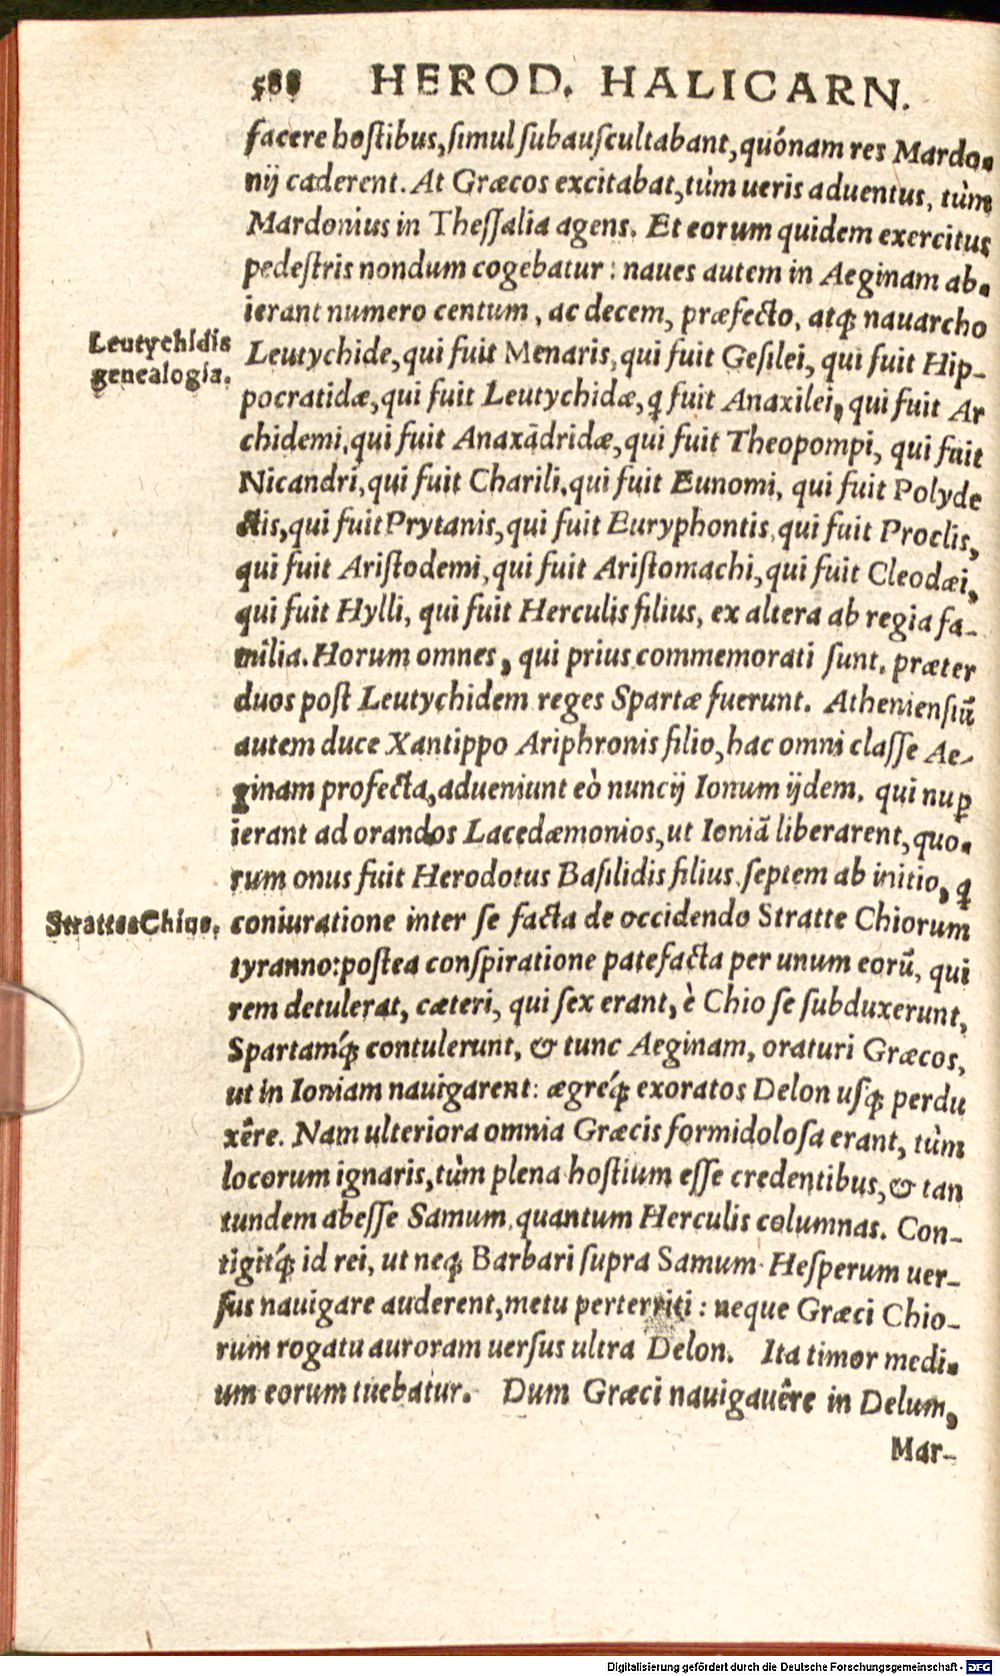 588 HEROD. HALICARN.
facere hostibus, simul subauscultabant, quónam res Mardo-
nij caderent. At Græcos excitabat, tùm ueris aduentus, tùm
Mardonius in Thessalia agens. Et eorum quidem exercitus
pedestris nondum cogebatur: naues autem in Aeginam ab-
ierant numero centum, ac decem, præfecto, atq; nauarcho
Leutychidis
genealogia.
Leutychide, qui fuit Menaris, qui fuit Gesilei, qui fuit Hip-
pocratidæ, qui fuit Leutychidæ, q̃ fuit Anaxilei, qui fuit Ar
chidemi, qui fuit Anaxãdridæ, qui fuit Theopompi, qui fuit
Nicandri, qui fuit Charili, qui fuit Eunomi, qui fuit Polyde
ctis, qui fuit Prytanis, qui fuit Euryphontis, qui fuit Proclis,
qui fuit Aristodemi, qui fuit Aristomachi, qui fuit Cleodæi,
qui fuit Hylli, qui fuit Herculis filius, ex altera ab regia fa-
milia. Horum omnes, qui prius commemorati sunt, præter
duos post Leutychidem reges Spartæ fuerunt. Atheniensiũ
autem duce Xantippo Ariphronis filio, hac omni classe Ae-
ginam profecta, adueniunt eò nuncij Ionum ijdem, qui nuꝑ
ierant ad orandos Lacedæmonios, ut Ioniã liberarent, quo-
rum onus fuit Herodotus Basilidis filius, septem ab initio, q̃
Strattes Chius.
coniuratione inter se facta de occidendo Stratte Chiorum
tyranno: postea conspiratione patefacta per unum eorũ, qui
rem detulerat, cæteri, qui sex erant, è Chio se subduxerunt,
Spartamq́; contulerunt, & tunc Aeginam, oraturi Græcos,
ut in Ioniam nauigarent: ægreq́; exoratos Delon usq; perdu
xêre. Nam ulteriora omnia Græcis formidolosa erant, tùm
locorum ignaris, tùm plena hostium esse credentibus, & tan
tundem abesse Samum, quantum Herculis columnas. Con-
tigitq́; id rei, ut neq; Barbari supra Samum Hesperum uer-
sus nauigare auderent, metu perterriti: neque Græci Chio-
rum rogatu auroram uersus ultra Delon. Ita timor medi-
um eorum tuebatur. Dum Græci nauigauêre in Delum,
Mar-
Digitalisierung gefördert durch die Deutsche Forschungsgemeinschaft - DFG